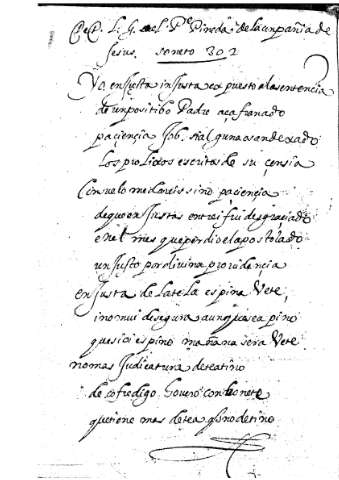 L. G. al Pe Pineda de la conpañia de
Jesus. soneto 302
Yo en justa injusta expuesto a la sentencia
de un positibo Padre açafranado
paciencia Job, si alguna os an dexado
los prolixos escritos de su çiençia
Consuelo me dareis si no paciençia
de que en justas entre i fui desgraciado
en el mes que perdio el apostolado
un justo por divina providençia
en justa de la tela espina Vete,
i no mui de segura aunque sea pino
que si oi es pino mañana sera Vete
no mas Judicatura de teatino
de cofre digo Overo con bonete
que tiene mas de tea que no de tino